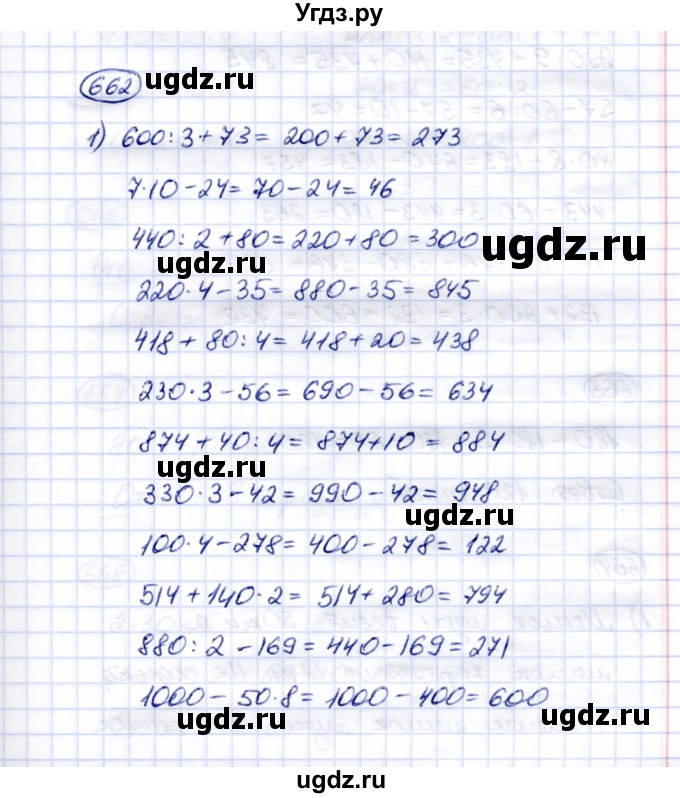 Угдз.ру
662
ugdz.ru
1) 600:3+73= 200+73= 273
7·10-24= 70-24= 46
440:2+80=220+80=300
ugdz.ru
ugdz.ru
220·4-35= 880-35= 845
418+80:4= 418+20=438
230·3-56= 690-56= 634
874+40:4= 874+10 = 884
ugdz.ru
330·3-42= 990-42= 948
ugdz.ru
100·4-278= 400-278= 122
514+140·2= 514+280= 794
880:2-169= 440-169= 271
1000-50·8= 1000-400= 600
ugdz.ru
ugdz.ru
ugdz.ru